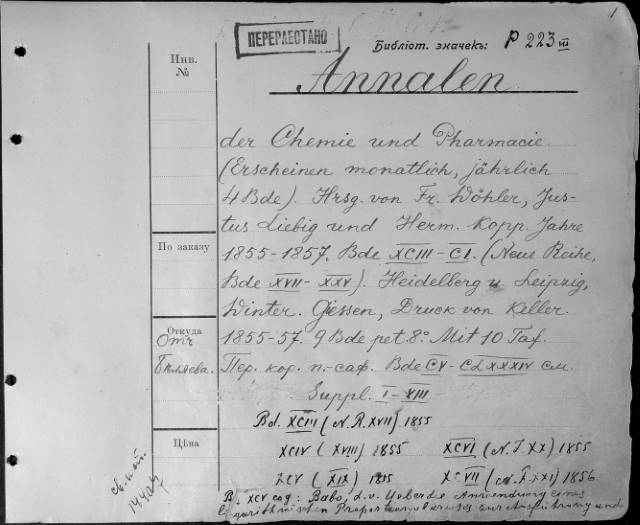 1
ПЕРЕРАБОТАНО
Библіот. значекъ: P 223 III
Инв.
№
Annalen
der Chemie und Pharmacie.
(Erscheinen monatlich, jährlich
4 Bde). Hrsg. von Fr. Wöhler, Jus-
tus Liebig und Herm. Kopp. Jahre
По заказу
1855-1857. Bde XCIII-CI. (Neue Reihe,
Bde XVII-XXV). Heidelberg u. Leipzig,
Winter. Giessen, Druck von Keller.
Откуда
Отъ
1855-57. 9 Bde pet. 8º. Mit 10 Taf.
Пер. кор. п.-саф. Bde CV-CLXXXIV см.
Suppl. I-VIII
Bd. XCIII (N.R. XVII) 1855
Цѣна
XCIV (XVIII) 1855 XCVI (N.F. XX) 1855
XCV (XIX) 1855 XCVII (N.F. XXI) 1856
XCV сод: Babo, d. v. Ueber die Anwendung eines